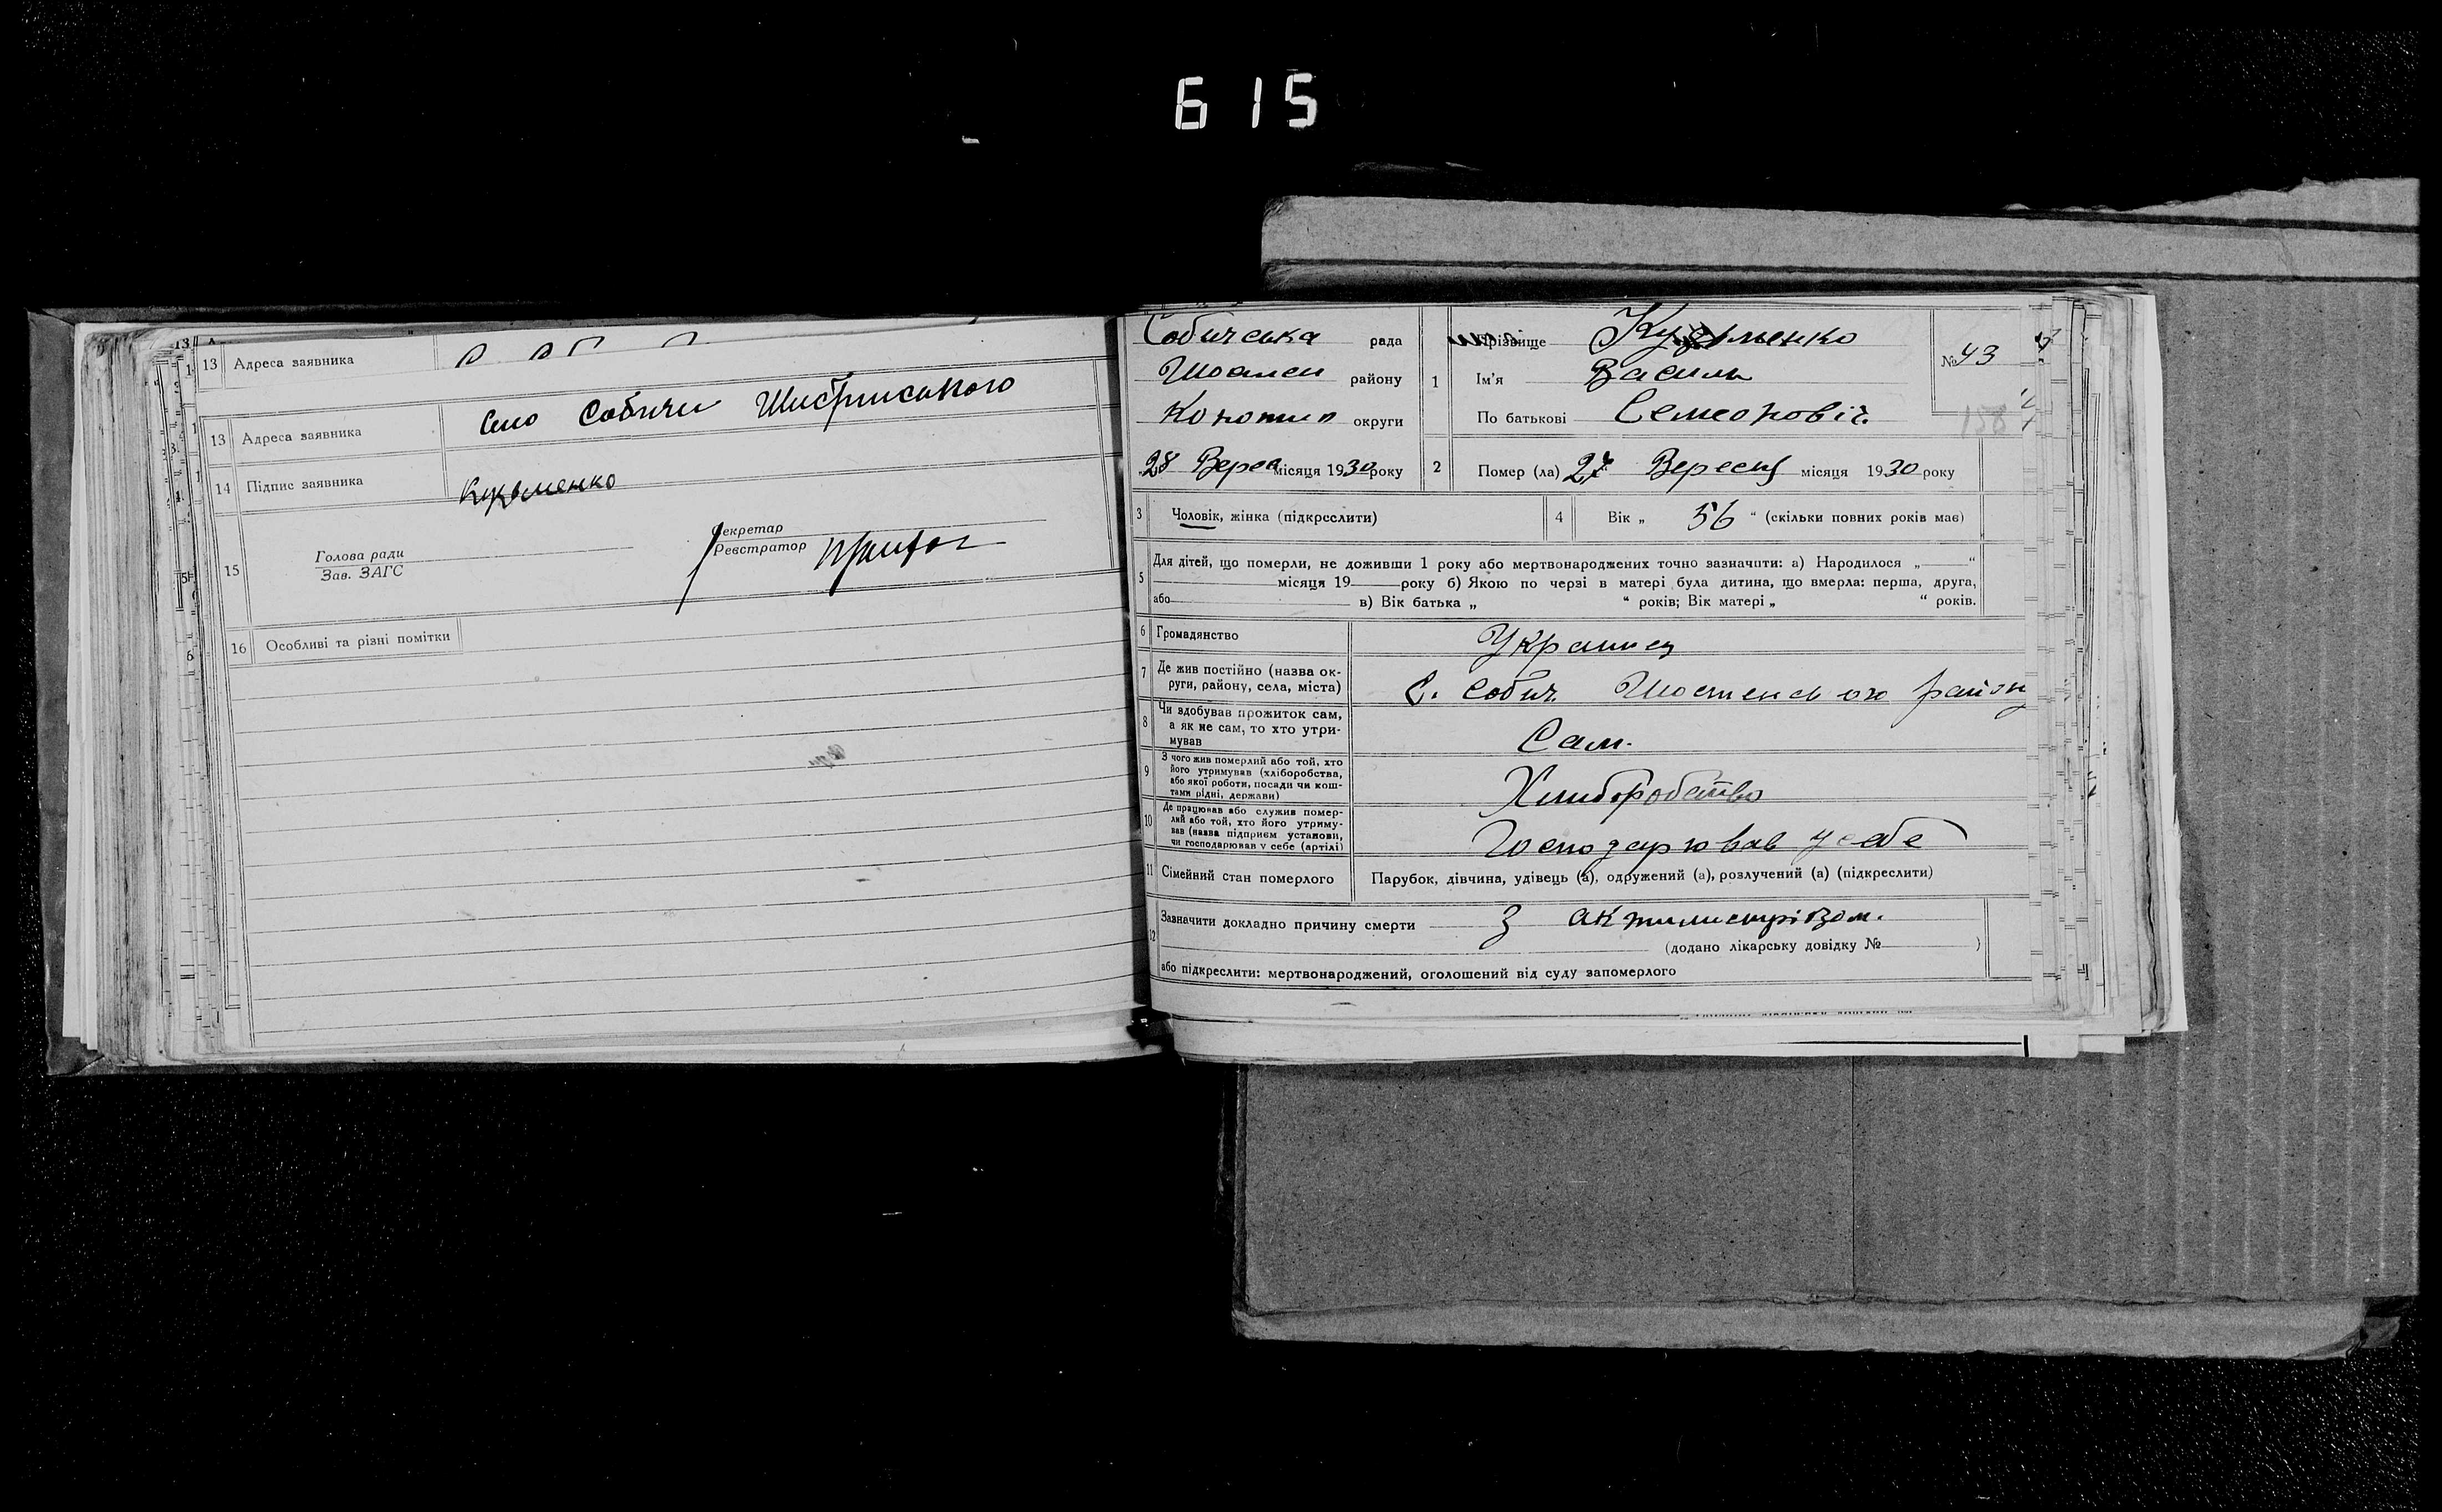 615
13 Адреса заявника
13 Адреса заявника Село Собичи
14 Підпис заявника Кузьменко
15 Голова ради
Зав. ЗАГС
Секретар
Реєстратор
16 Особливі та різні помітки
Собичська рада
району
Конотип округи
28 Верес місяця 1930 року
1 Прізвище Кузьменко
Ім'я Василь
По батькові Семеновіч
№ 43
158
2 Помер (ла) 27 Вересня місяця 1930 року
3 Чоловік, жінка (підкреслити)
4 Вік „ 56 " (скільки повних років має)
5 Для дітей, що померли, не доживши 1 року або мертвонароджених точно зазначити: а) Народилося „ "
місяця 19 року б) Якою по черзі в матері була дитина, що вмерла: перша, друга,
або в) Вік батька „ " років; Вік матері „ " років.
6 Громадянство
7 Де жив постійно (назва ок-
руги, району, села, міста) С. Собич району
8 Чи здобував прожиток сам,
а як не сам, то хто утри-
мував Сам.
9 З чого жив померлий або той, хто
його утримував (хліборобства,
або якої роботи, посади чи кош-
тами рідні, держави)
10 Де працював або служив помер-
лий або той, хто його утриму-
вав (назва підприєм установи,
чи господарював у себе (артілі) Господарював у себе
11 Сімейний стан померлого Парубок, дівчина, удівець (а), одружений (а), розлучений (а) (підкреслити)
12 Зазначити докладно причину смерти З
(додано лікарську довідку № )
або підкреслити: мертвонароджений, оголошений від суду запомерлого